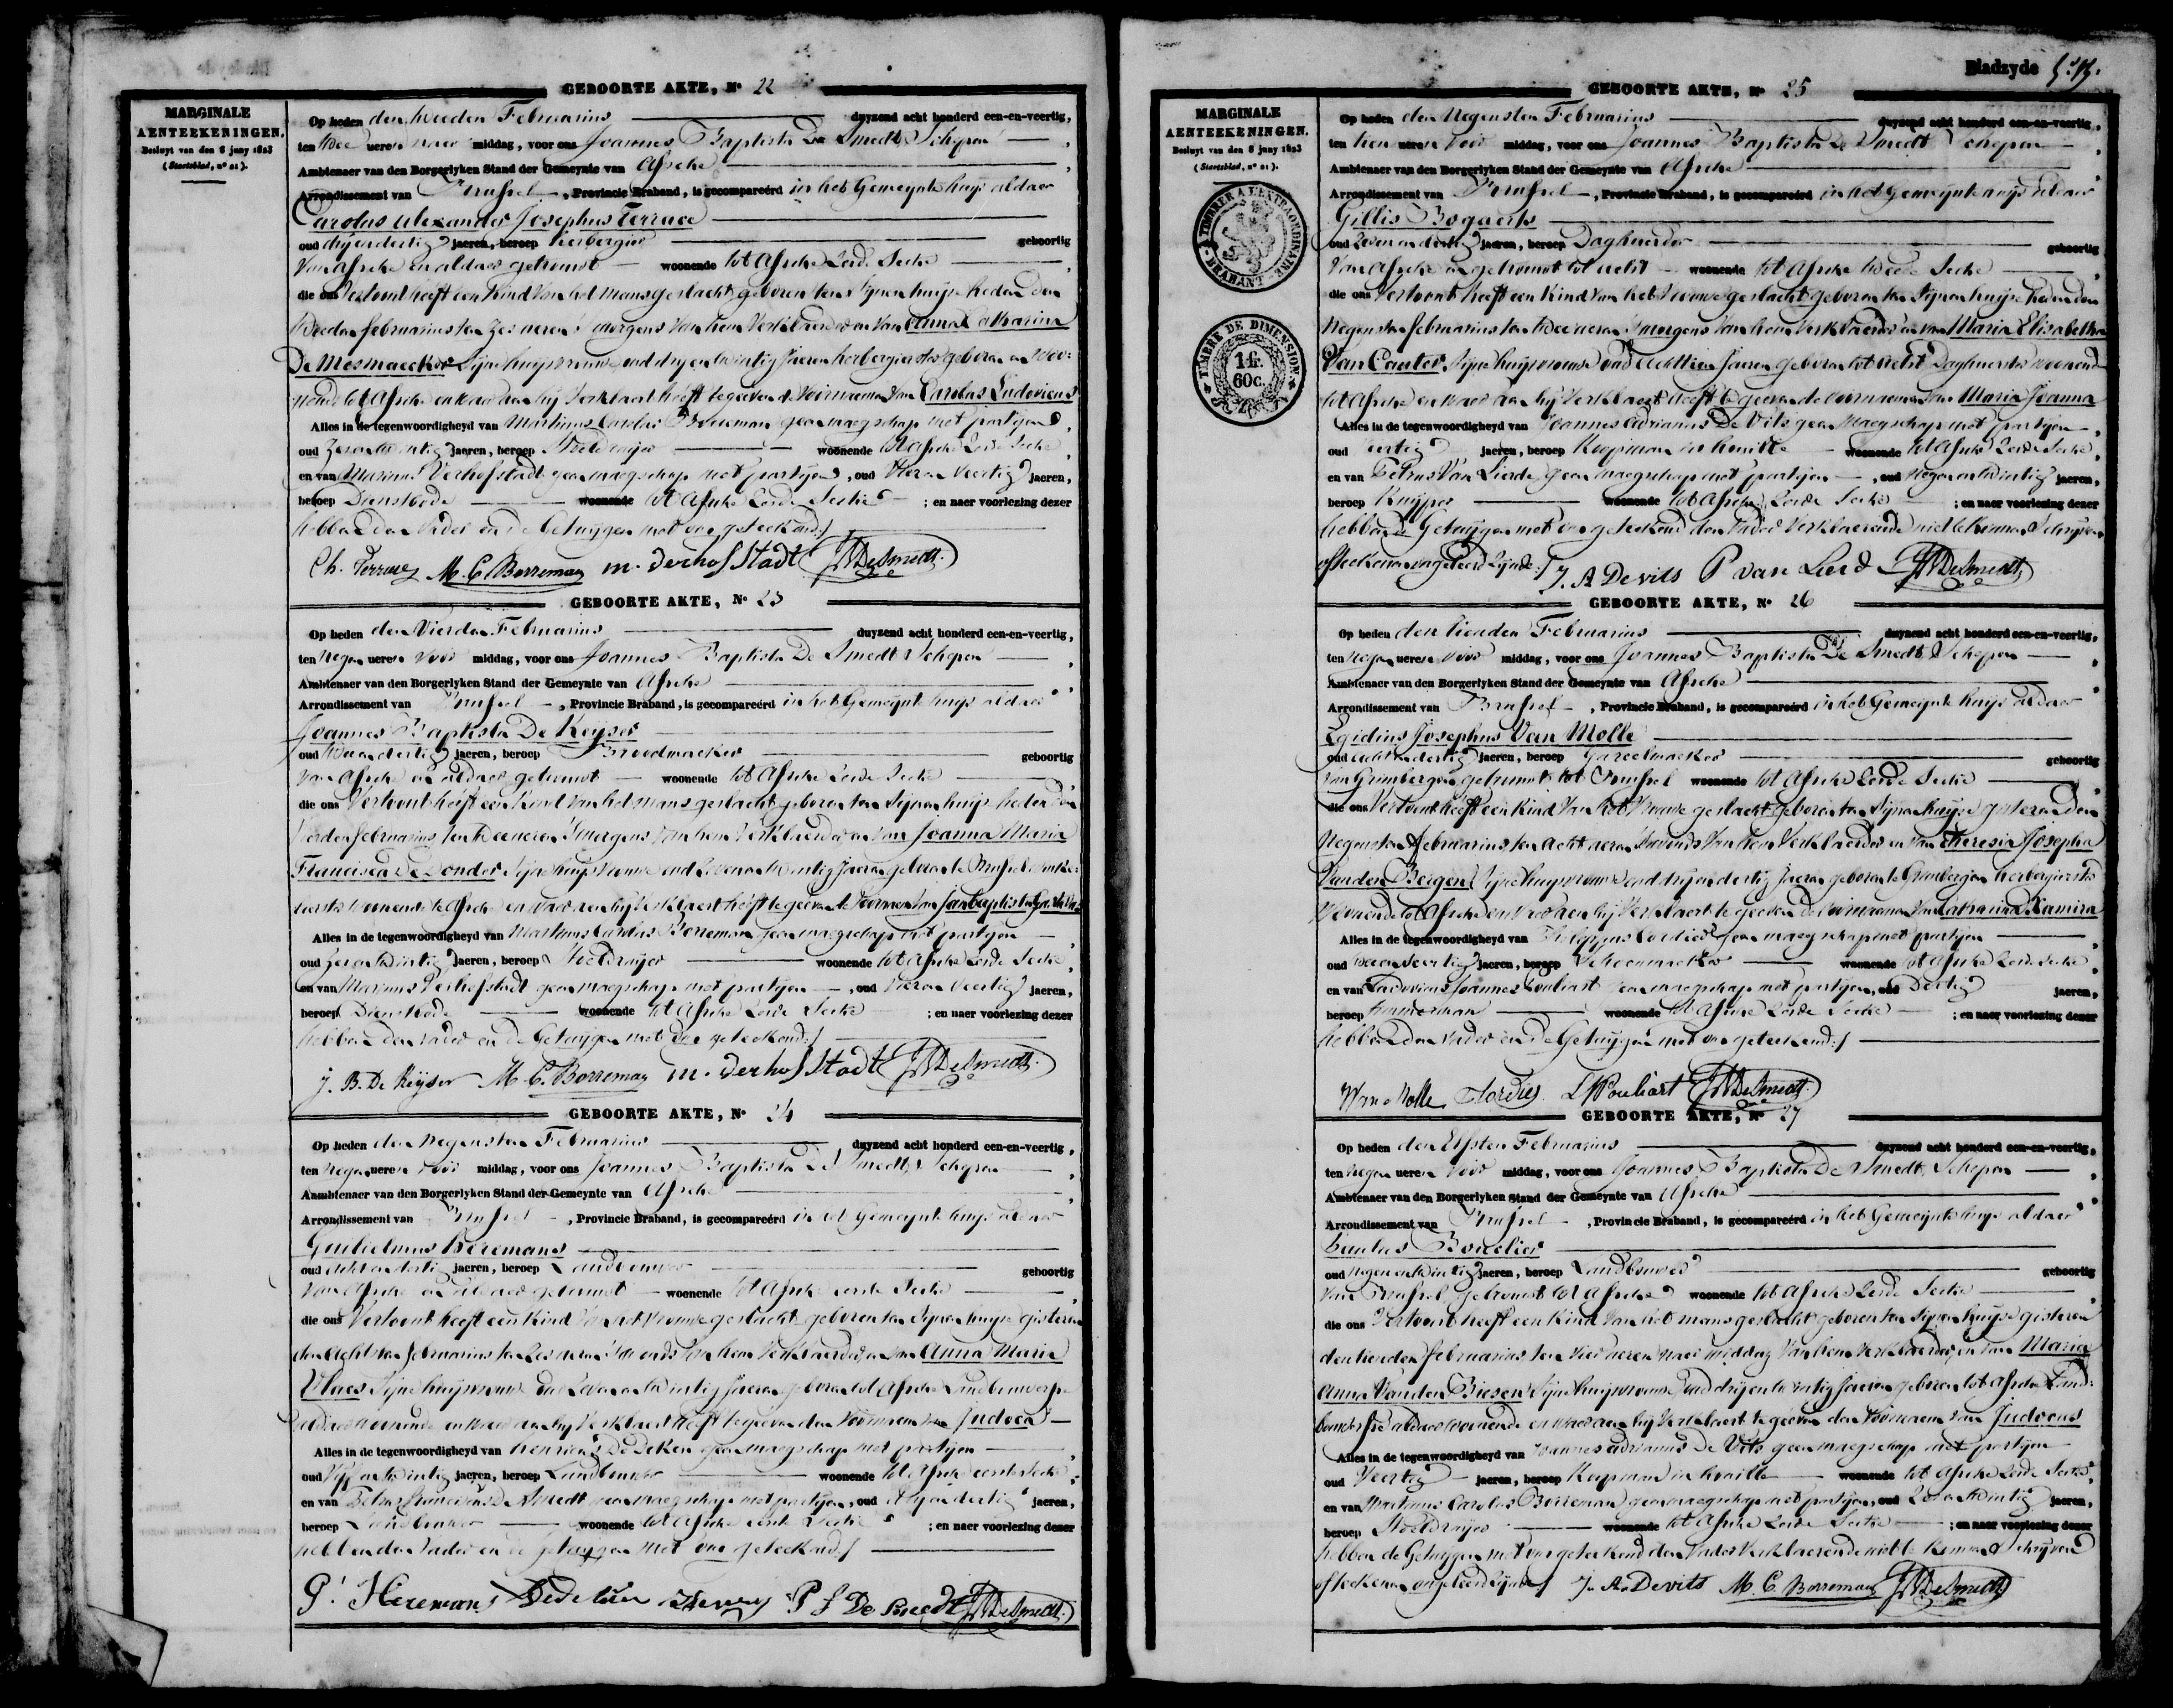 MARGINALE
AENTEEKENINGEN.
Besluyt van den 8 juny 1823
(Staetsblad, nº 21).
GEBOORTE AKTE, Nº 22
Op heden den tweeden Februarius duyzend acht honderd een-en-veertig,
ten twee ueren naer middag, voor ons Joannes Baptista De Smedt, Schepen
Ambtenaer van den Borgerlyken Stand der Gemeynte van Assche
Arrondissement van Brussel, Provincie Braband, is gecompareérd in het Gemeynte huys aldaer
Carolus Alexander Josephus Terrace
oud dryendertig jaeren, beroep herbergier geboortig
van Assche en aldaer getrouwt woonende tot Assche derde Sectie
die ons vertoont heeft een Kind van het mans geslacht geboren ten zynen huyse heden den
tweeden februarius ten zes ueren 's morgens van hem verklaerder en van Anna Catharina
De Mesmaecker zyne huysvrouwe oud dry en twintig jaeren herbergierster geboren en woo-
nende tot Assche en waer aen hy verklaert heeft te geeven de Voornaemen van Carolus Ludovicus
Alles in de tegenwoordigheyd van Martinus Carolus Borreman geen maegschap met partyen
oud zesentwintig jaeren, beroep Stoeldrayer woonende tot Assche derde Sectie
en van Marinus Verhofstadt geen maegschap met partyen, oud vier en veertig jaeren,
beroep Dienstbode woonende tot Assche derde Sectie ; en naer voorlezing dezer
hebben den vader en de Getuygen met ons geteekend
Ch. Terrace M. C. Borreman m. Verhofstadt JBDeSmedt
GEBOORTE AKTE, Nº 23
Op heden den Vierden Februarius duyzend acht honderd een-en-veertig,
ten negen ueren voor middag, voor ons Joannes Baptista De Smedt Schepen
Ambtenaer van den Borgerlyken Stand der Gemeynte van Assche
Arrondissement van Brussel, Provincie Braband, is gecompareérd in het Gemeynte huys aldaer
Joannes Baptista De Keyser
oud twee en dertig jaeren, beroep Broodmaeker geboortig
van Assche en aldaer getrouwt woonende tot Assche derde Sectie
die ons Vertoont heeft een Kind van het mans geslacht geboren ten zynen huyse heden den
Vierden februarius ten twee ueren 's morgens van hem Verklaerder en van Joanna Maria
Francisca De Donder zyne huysvrouwe oud zeven en twintig jaeren geboren te Brussel
woonende te Assche en waer aen hy verklaert heeft te geeven de Voornaemen van
Alles in de tegenwoordigheyd van Martinus Carolus Borreman geen maegschap met partyen
oud zesentwintig jaeren, beroep Stoeldrayer woonende tot Assche derde Sectie
en van Marinus Verhofstadt geen maegschap met partyen, oud Vier en Veertig jaeren,
beroep Dienstbode woonende tot Assche derde Sectie ; en naer voorlezing dezer
hebben den vader en de Getuygen met ons geteekend
J. B. De Keyser M. C. Borreman m. Verhofstadt JBDeSmedt
GEBOORTE AKTE, Nº 24
Op heden den negensten Februarius duyzend acht honderd een-en-veertig,
ten negen ueren voor middag, voor ons Joannes Baptista De Smedt, Schepen
Ambtenaer van den Borgerlyken Stand der Gemeynte van Assche
Arrondissement van Brussel, Provincie Braband, is gecompareérd in het Gemeynte huys aldaer
Guilielmus Heremans
oud acht en dertig jaeren, beroep Landbouwer geboortig
van Assche en aldaer getrouwt woonende tot Assche eerste Sectie
die ons Vertoont heeft een Kind van het vrouwe geslacht geboren ten zynen huyse gisteren
den achtsten februarius ten zes ueren 's avonds van hem Verklaerder en van Anna Maria
Vlaes zyne huysvrouwe oud zeven en twintig jaeren geboren tot Assche Landbouwersse
aldaer woonende en waer aen hy Verklaert heeft te geeven den Voornaem van Judoca
Alles in de tegenwoordigheyd van Henricus De Deken geen maegschap met partyen
oud Vyf en twintig jaeren, beroep Landbouwer woonende tot Assche eerste Sectie
en van Petrus Franciscus De Smedt geen maegschap met partyen, oud dry en dertig jaeren,
beroep Landbouwer woonende tot Assche eerste Sectie ; en naer voorlezing dezer
hebben den vader en de Getuygen met ons geteekend
G. Heremans Dedeken Henry P F De Smedt JBDeSmedt
Bladzyde
MARGINALE
AENTEEKENINGEN.
Besluyt van den 8 juny 1823
(Staetsblad, nº 21).
TIMBRE A L'EXTRAORDINAIRE
BRABANT
TIMBRE DE DIMENSION
1 fr.
60 c.
GEBOORTE AKTE, Nº 25
Op heden den Negensten Februarius duyzend acht honderd een-en-veertig,
ten tien ueren voor middag, voor ons Joannes Baptista De Smedt Schepen
Ambtenaer van den Borgerlyken Stand der Gemeynte van Assche
Arrondissement van Brussel, Provincie Braband, is gecompareérd in het Gemeynte huys aldaer
Gillis Bogaerts
oud zeven en dertig jaeren, beroep Daghuerder geboortig
van Assche en getrouwt tot woonende tot Assche tweede Sectie
die ons Vertoont heeft een Kind van het Vrouwe geslacht geboren ten zynen huyse heden den
Negensten februarius ten twee ueren 's morgens van hem Verklaerder en van Maria Elisabetha
Van Cauter zyne huysvrouwe oud jaeren geboren tot Daghuerster woonende
tot Assche en waer aen hy Verklaert heeft te geeven de voornaemen van Maria Joanna
Alles in de tegenwoordigheyd van Joannes Adrianus De Vits geen Maegschap met partyen
oud veertig jaeren, beroep Koopman in woonende tot Assche derde Sectie
en van Petrus Van Lierde geen maegschap met partyen, oud negen en twintig jaeren,
beroep Kuyper woonende tot Assche derde Sectie ; en naer voorlezing dezer
hebben de Getuygen met ons geteekend den Vader Verklaerende niet te konnen Schryven
of teekenen ongeleerd zynde J. A Devits P van Lierd JBDeSmedt
GEBOORTE AKTE, Nº 26
Op heden den tienden Februarius duyzend acht honderd een-en-veertig,
ten negen ueren voor middag, voor ons Joannes Baptista De Smedt, Schepen
Ambtenaer van den Borgerlyken Stand der Gemeynte van Assche
Arrondissement van Brussel, Provincie Braband, is gecompareérd in het Gemeynte huys aldaer
Egidius Josephus Van Molle
oud acht en dertig jaeren, beroep Gareelmaeker geboortig
van Grimbergen getrouwt tot Brussel woonende tot Assche derde Sectie
die ons Vertoont heeft een Kind van het Vrouwe geslacht geboren ten zynen huyse gisteren den
Negensten februarius ten acht ueren 's avonds van hem Verklaerder en van Theresia Josepha
Vanden Bergen zyne huysvrouwe oud dry en dertig jaeren geboren te Grimbergen herbergierster
Woonende tot Assche en waer aen hy Verklaert te geeven de Voornaemen van Catharina Ramira
Alles in de tegenwoordigheyd van Philippus Cordier geen maegschap met partyen
oud twee en veertig jaeren, beroep Schoenmaeker woonende tot Assche derde Sectie
en van Ludovicus Joannes Bouliart geen maegschap met partyen, oud Dertig jaeren,
beroep timmerman woonende tot Assche derde Sectie ; en naer voorlezing dezer
hebben den Vader en de Getuygen met ons geteekend
Van Molle JBDeSmedt
GEBOORTE AKTE, Nº 27
Op heden den Elfsten Februarius duyzend acht honderd een-en-veertig,
ten negen ueren voor middag, voor ons Joannes Baptista De Smedt, Schepen
Ambtenaer van den Borgerlyken Stand der Gemeynte van Assche
Arrondissement van Brussel, Provincie Braband, is gecompareérd in het Gemeynte huys aldaer
Paulus Bouclier
oud negen en twintig jaeren, beroep Landbouwer geboortig
van Brussel getrouwt tot Assche woonende tot Assche derde Sectie
die ons Vertoont heeft een Kind van het mans geslacht geboren ten zynen huyse gisteren
den tienden februarius ten vier ueren naer middag van hem Verklaerder en van Maria
Anna Vanden Biesen zyne huysvrouwe oud dry en twintig jaeren geboren tot Assche Land-
bouwersse aldaer woonende en waer aen hy Verklaert te geeven den Voornaem van Judocus
Alles in de tegenwoordigheyd van Joannes Adrianus De Vits geen maegschap met partyen
oud Veertig jaeren, beroep Koopman in woonende tot Assche derde Sectie
en van Martinus Carolus Borreman geen maegschap met partyen, oud zes en twintig jaeren,
beroep Stoeldrayer woonende tot Assche derde Sectie ; en naer voorlezing dezer
hebben de Getuygen met ons geteekend den Vader Verklaerende niet te konnen Schryven
of teekenen ongeleerd zynde J. A. Devits M. C. Borreman JBDeSmedt